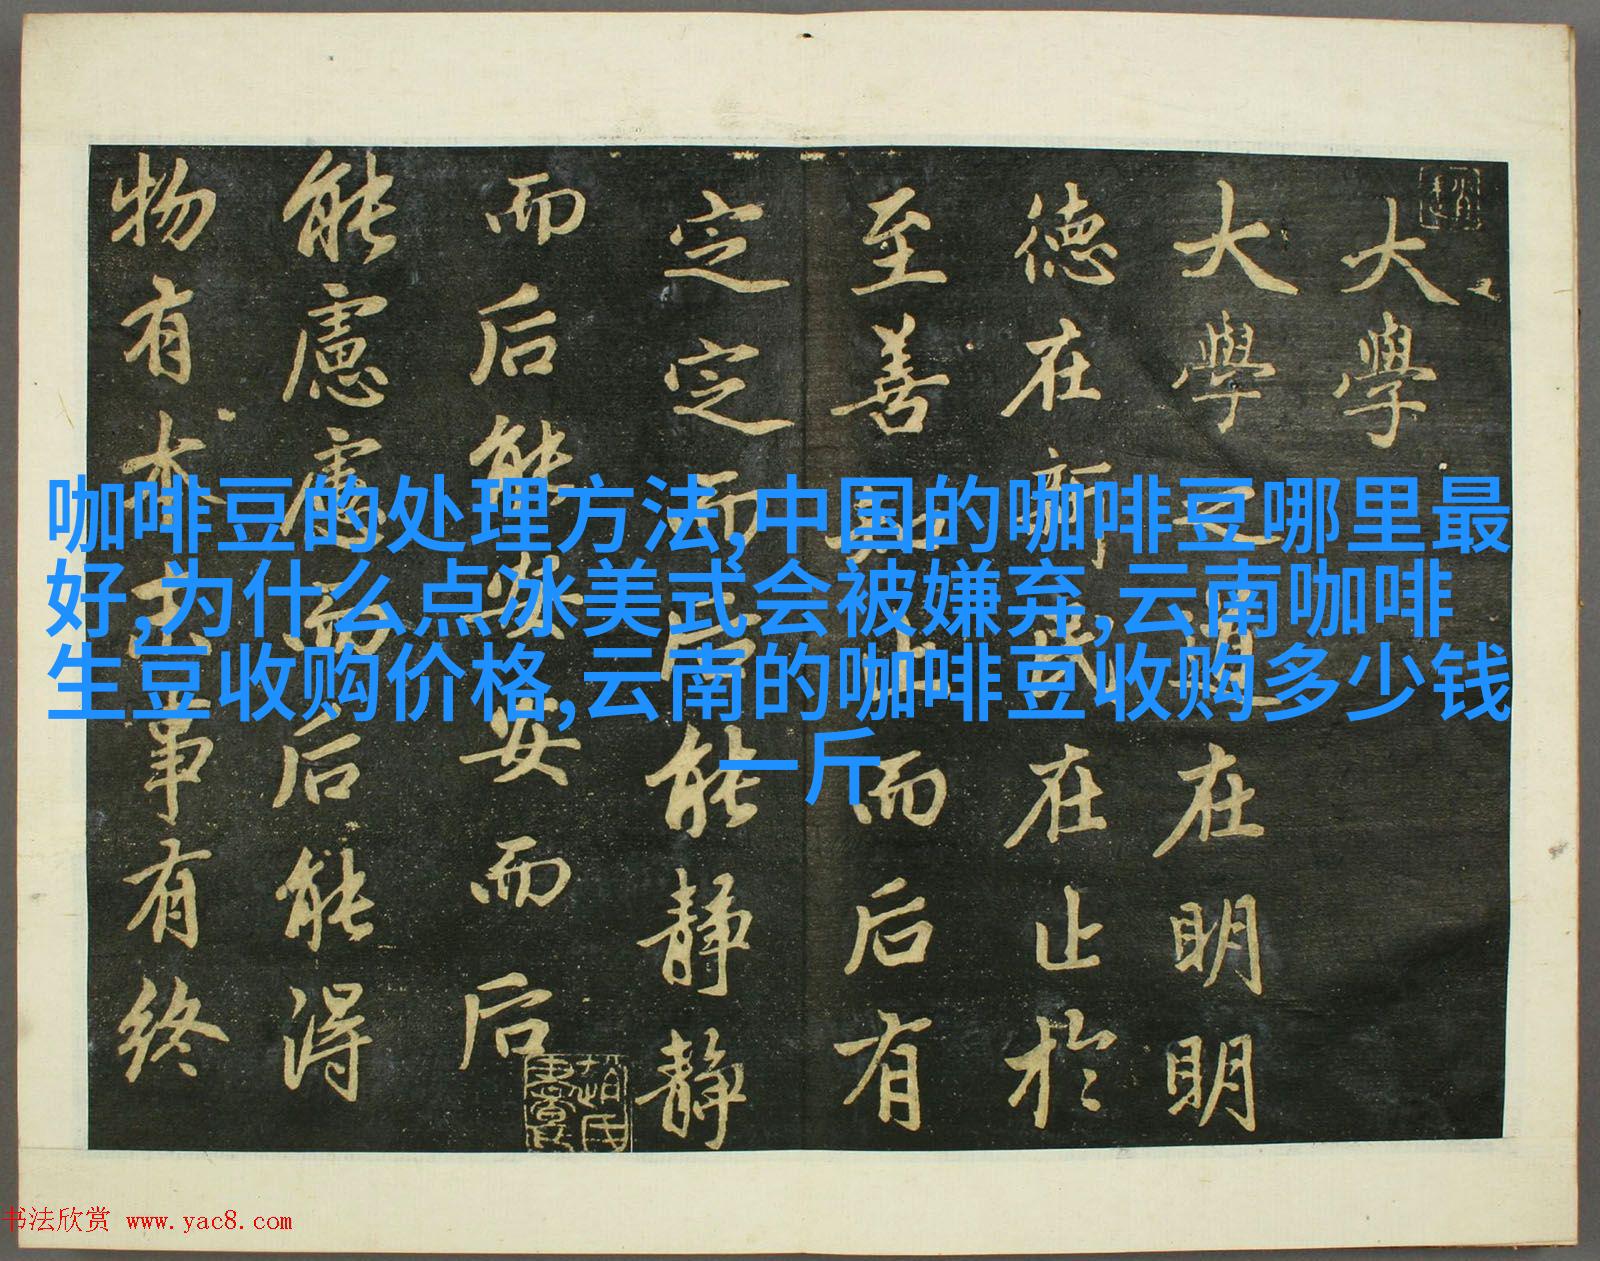 大學
大學之道在明明
德在新民在止於
至善知止而后有
定定而后能静静
而后能安安而后
能慮慮而后能得
物有本末事有終
咖啡豆的处理方法,中国的咖啡豆哪里最
好,为什么点冰美式会被嫌弃,云南咖啡
生豆收购价格,云南的咖啡豆收购多少钱
一斤
书法欣赏 www.yac8.com